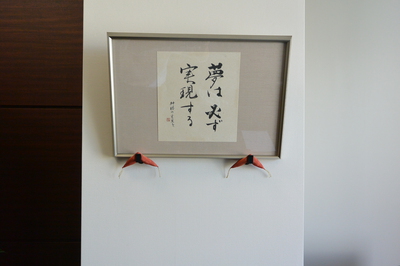 夢は必ず
実現する